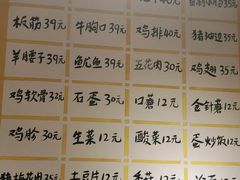 板筋39元 牛胸口39元 鸡排40元
羊腰子39元 鱿鱼39元 五花肉30元 鸡翅35元
鸡软骨32元 石蛋30元 口蘑12元 金针菇12元
鸡胗30元 生菜12元 酸菜12元 蛋炒饭12元
土豆片12元